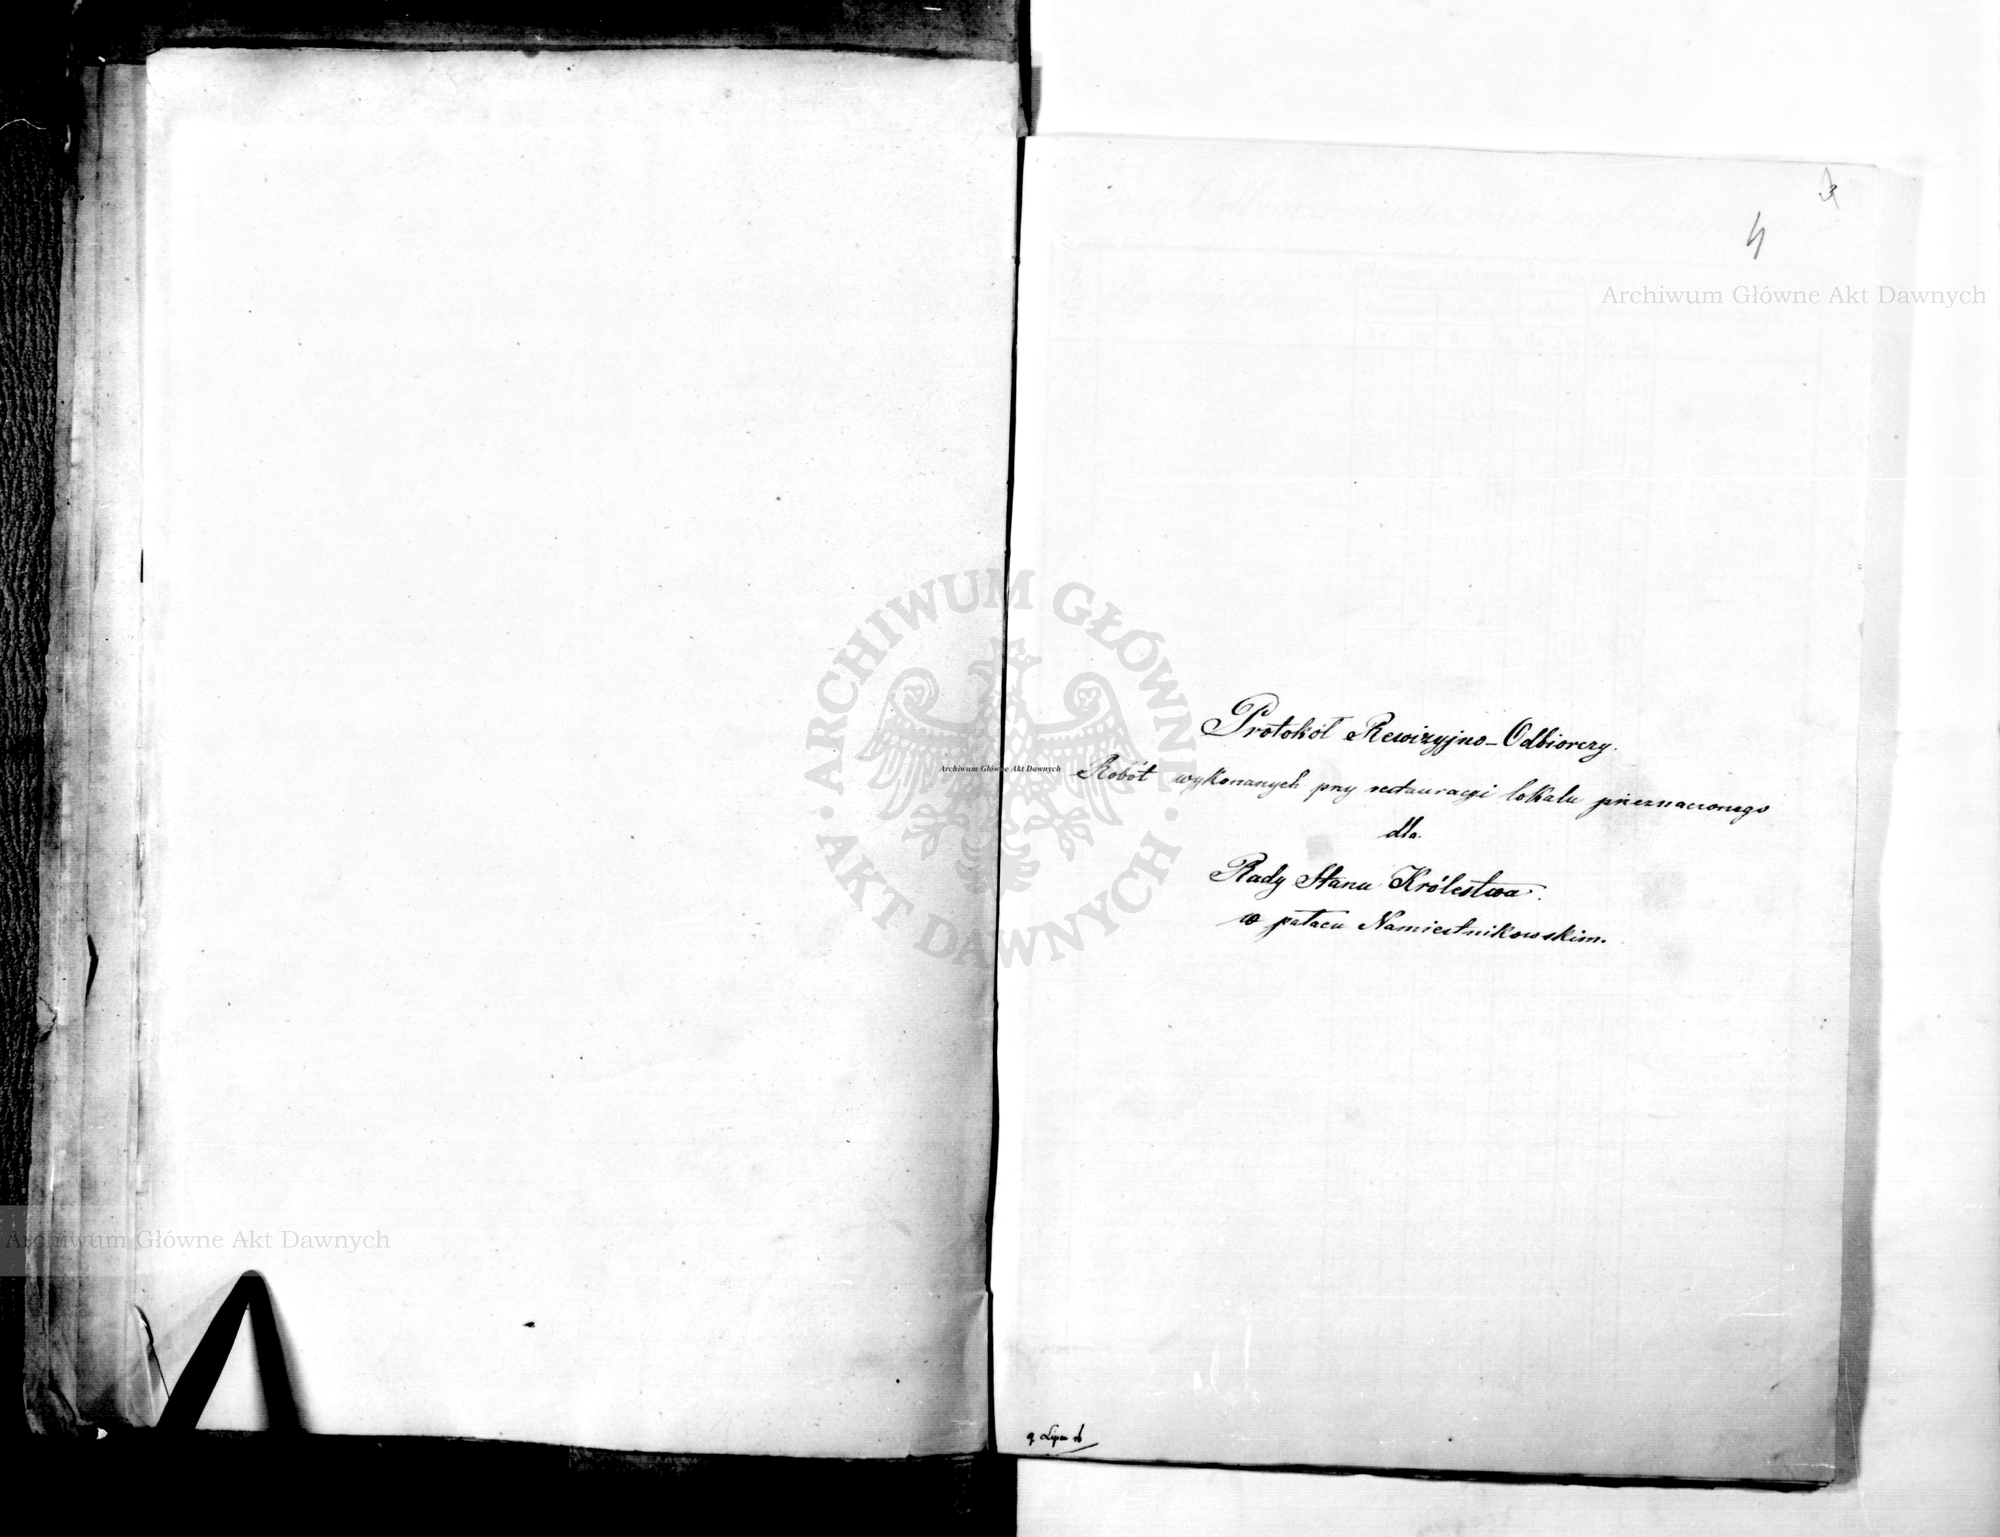 3
4
Archiwum Główne Akt Dawnych
Protokół Rewizyjno-Odbiorczy.
Robót wykonanych przy restauracyi lokalu przeznaczonego
dla
Rady Stanu Królestwa.
w pałacu Namiestnikowskim.
ARCHIWUM GŁÓWNE AKT DAWNYCH
Archiwum Główne Akt Dawnych
Archiwum Główne Akt Dawnych